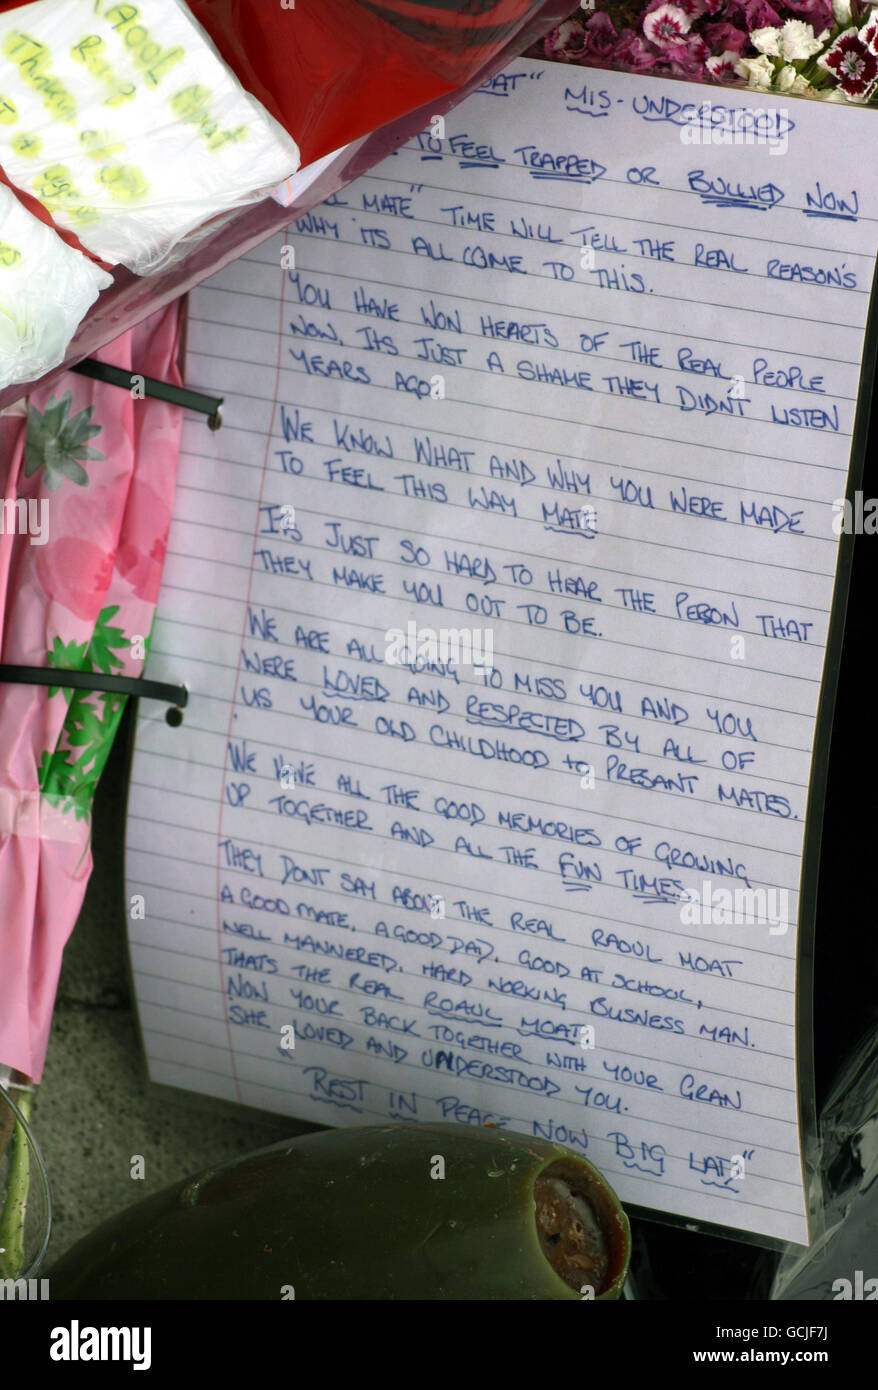 RAOUL
MOAT
OAT" MIS-UNDERSTOOD
TO FEEL TRAPPED OR BULLIED NOW
MATE" TIME WILL TELL THE REAL REASON'S
WHY ITS ALL COME TO THIS.
YOU HAVE WON HEARTS OF THE REAL PEOPLE
NOW, ITS JUST A SHAME THEY DIDNT LISTEN
YEARS AGO.
WE KNOW WHAT AND WHY YOU WERE MADE
TO FEEL THIS WAY MATE
ITS JUST SO HARD TO HEAR THE PERSON THAT
THEY MAKE YOU OUT TO BE.
WE ARE ALL GOING TO MISS YOU AND YOU
WERE LOVED AND RESPECTED BY ALL OF
US YOUR OLD CHILDHOOD to PRESANT MATES.
WE HAVE ALL THE GOOD MEMORIES OF GROWING
UP TOGETHER AND ALL THE FUN TIMES.
THEY DONT SAY ABOUT THE REAL RAOUL MOAT
A GOOD MATE, A GOOD DAD, GOOD AT SCHOOL,
WELL MANNERED, HARD WORKING BUSNESS MAN.
THATS THE REAL ROAUL MOAT
NOW YOUR BACK TOGETHER WITH YOUR GRAN
SHE LOVED AND UNDERSTOOD YOU.
"REST IN PEACE NOW BIG LAT"
alamy
Image ID: GCJF7J
www.alamy.com